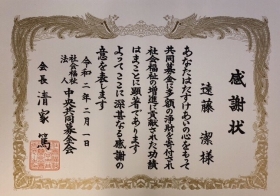 感謝状
遠藤 潔 様
あなたはたすけあいの心をもって
共同募金に多額の浄財を寄付され
社会福祉の増進に貢献された功績
はまことに顕著であります
よってここに深甚なる感謝の
意を表します
令和二年二月一日
社会福祉法人 中央共同募金会
会長 清家 篤